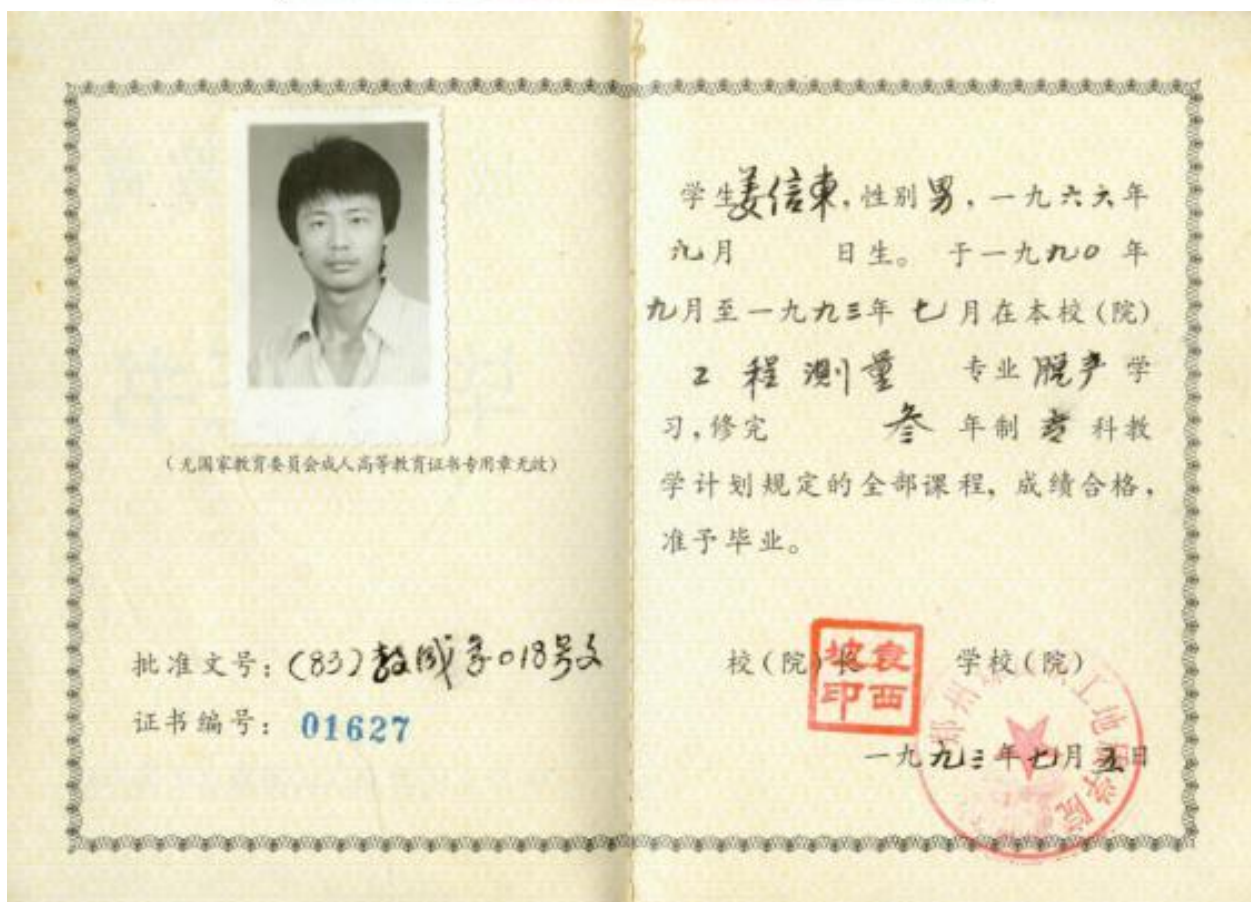 (无国家教育委员会成人高等教育证书专用章无效)
批准文号:(83)教成字018号文
证书编号:01627
学生姜信東,性别男,一九六六年
九月 日生。于一九九0年
九月至一九九三年七月在本校(院)
工程测量 专业脱产学
习,修完 叁年制专科教
学计划规定的全部课程,成绩合格,
准予毕业。
校(院)长 学校(院)
袁西坡印
一九九三年七月五日